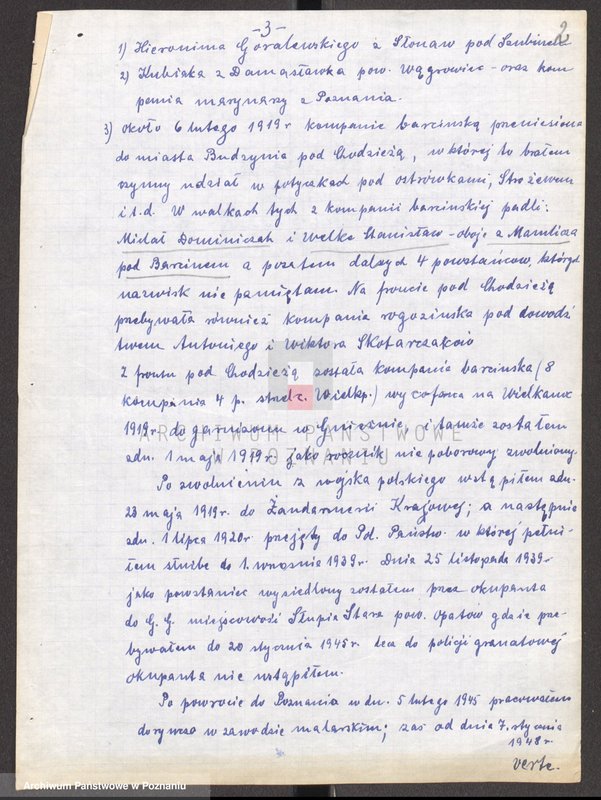 -3-
2
1) Hieronima Góralewskiego z Słonaw pod Szubinem
2) Kubiaka z Damasławka pow. Wągrowiec - oraz kom
pania marynarzy z Poznania.
3) około 6 lutego 1919 r kompanie barcińską przeniesiono
do miasta Budzynia pod Chodzieżą, w której to brałem
czynny udział w potyczkach pod Ostrówkami, Strożewem
i t.d. W walkach tych z kompanii barcińskiej padli:
Michał Dominiczak i Welke Stanisław - oboje z Mamlicza
pod Barcinem a pozatem dalszych 4 powstańców, których
nazwisk nie pamiętam. Na froncie pod Chodzieżą
przebywała również kompania rogozińska pod dowódz
twem Antoniego i Wiktora Skotarczaków
Z frontu pod Chodzieżą została kompania barcińska (8
kompania 4 p. strzelc. Wielkp.) wycofana na Wielkanoc
1919 r. do garnizonu w Gnieźnie, i tamże zostałem
zdn. 1 maja 1919 r. jako rocznik nie poborowy zwolniony.
Po zwolnieniu z wojska polskiego wstąpiłem zdn.
23 maja 1919 r. do Żandarmerii Krajowej; a następnie
zdn. 1 lipca 1920 r przejęty do Pol. Państw. w której pełni-
łem służbę do 1. września 1939 r. Dnia 25 listopada 1939 r.
jako powstaniec wysiedlony zostałem przez okupanta
do G. G. miejscowość Słupia Stara pow. Opatów gdzie prze-
bywałem do 20 stycznia 1945 r. lecz do policji granatowej
okupanta nie wstąpiłem.
Po powrocie do Poznania w dn. 5 lutego 1945 pracowałem
dorywczo w zawodzie malarskim; zaś od dnia 7. stycznia
1948 r.
verte.
ARCHIWUM PAŃSTWOWE
W POZNANIU
Archiwum Państwowe w Poznaniu